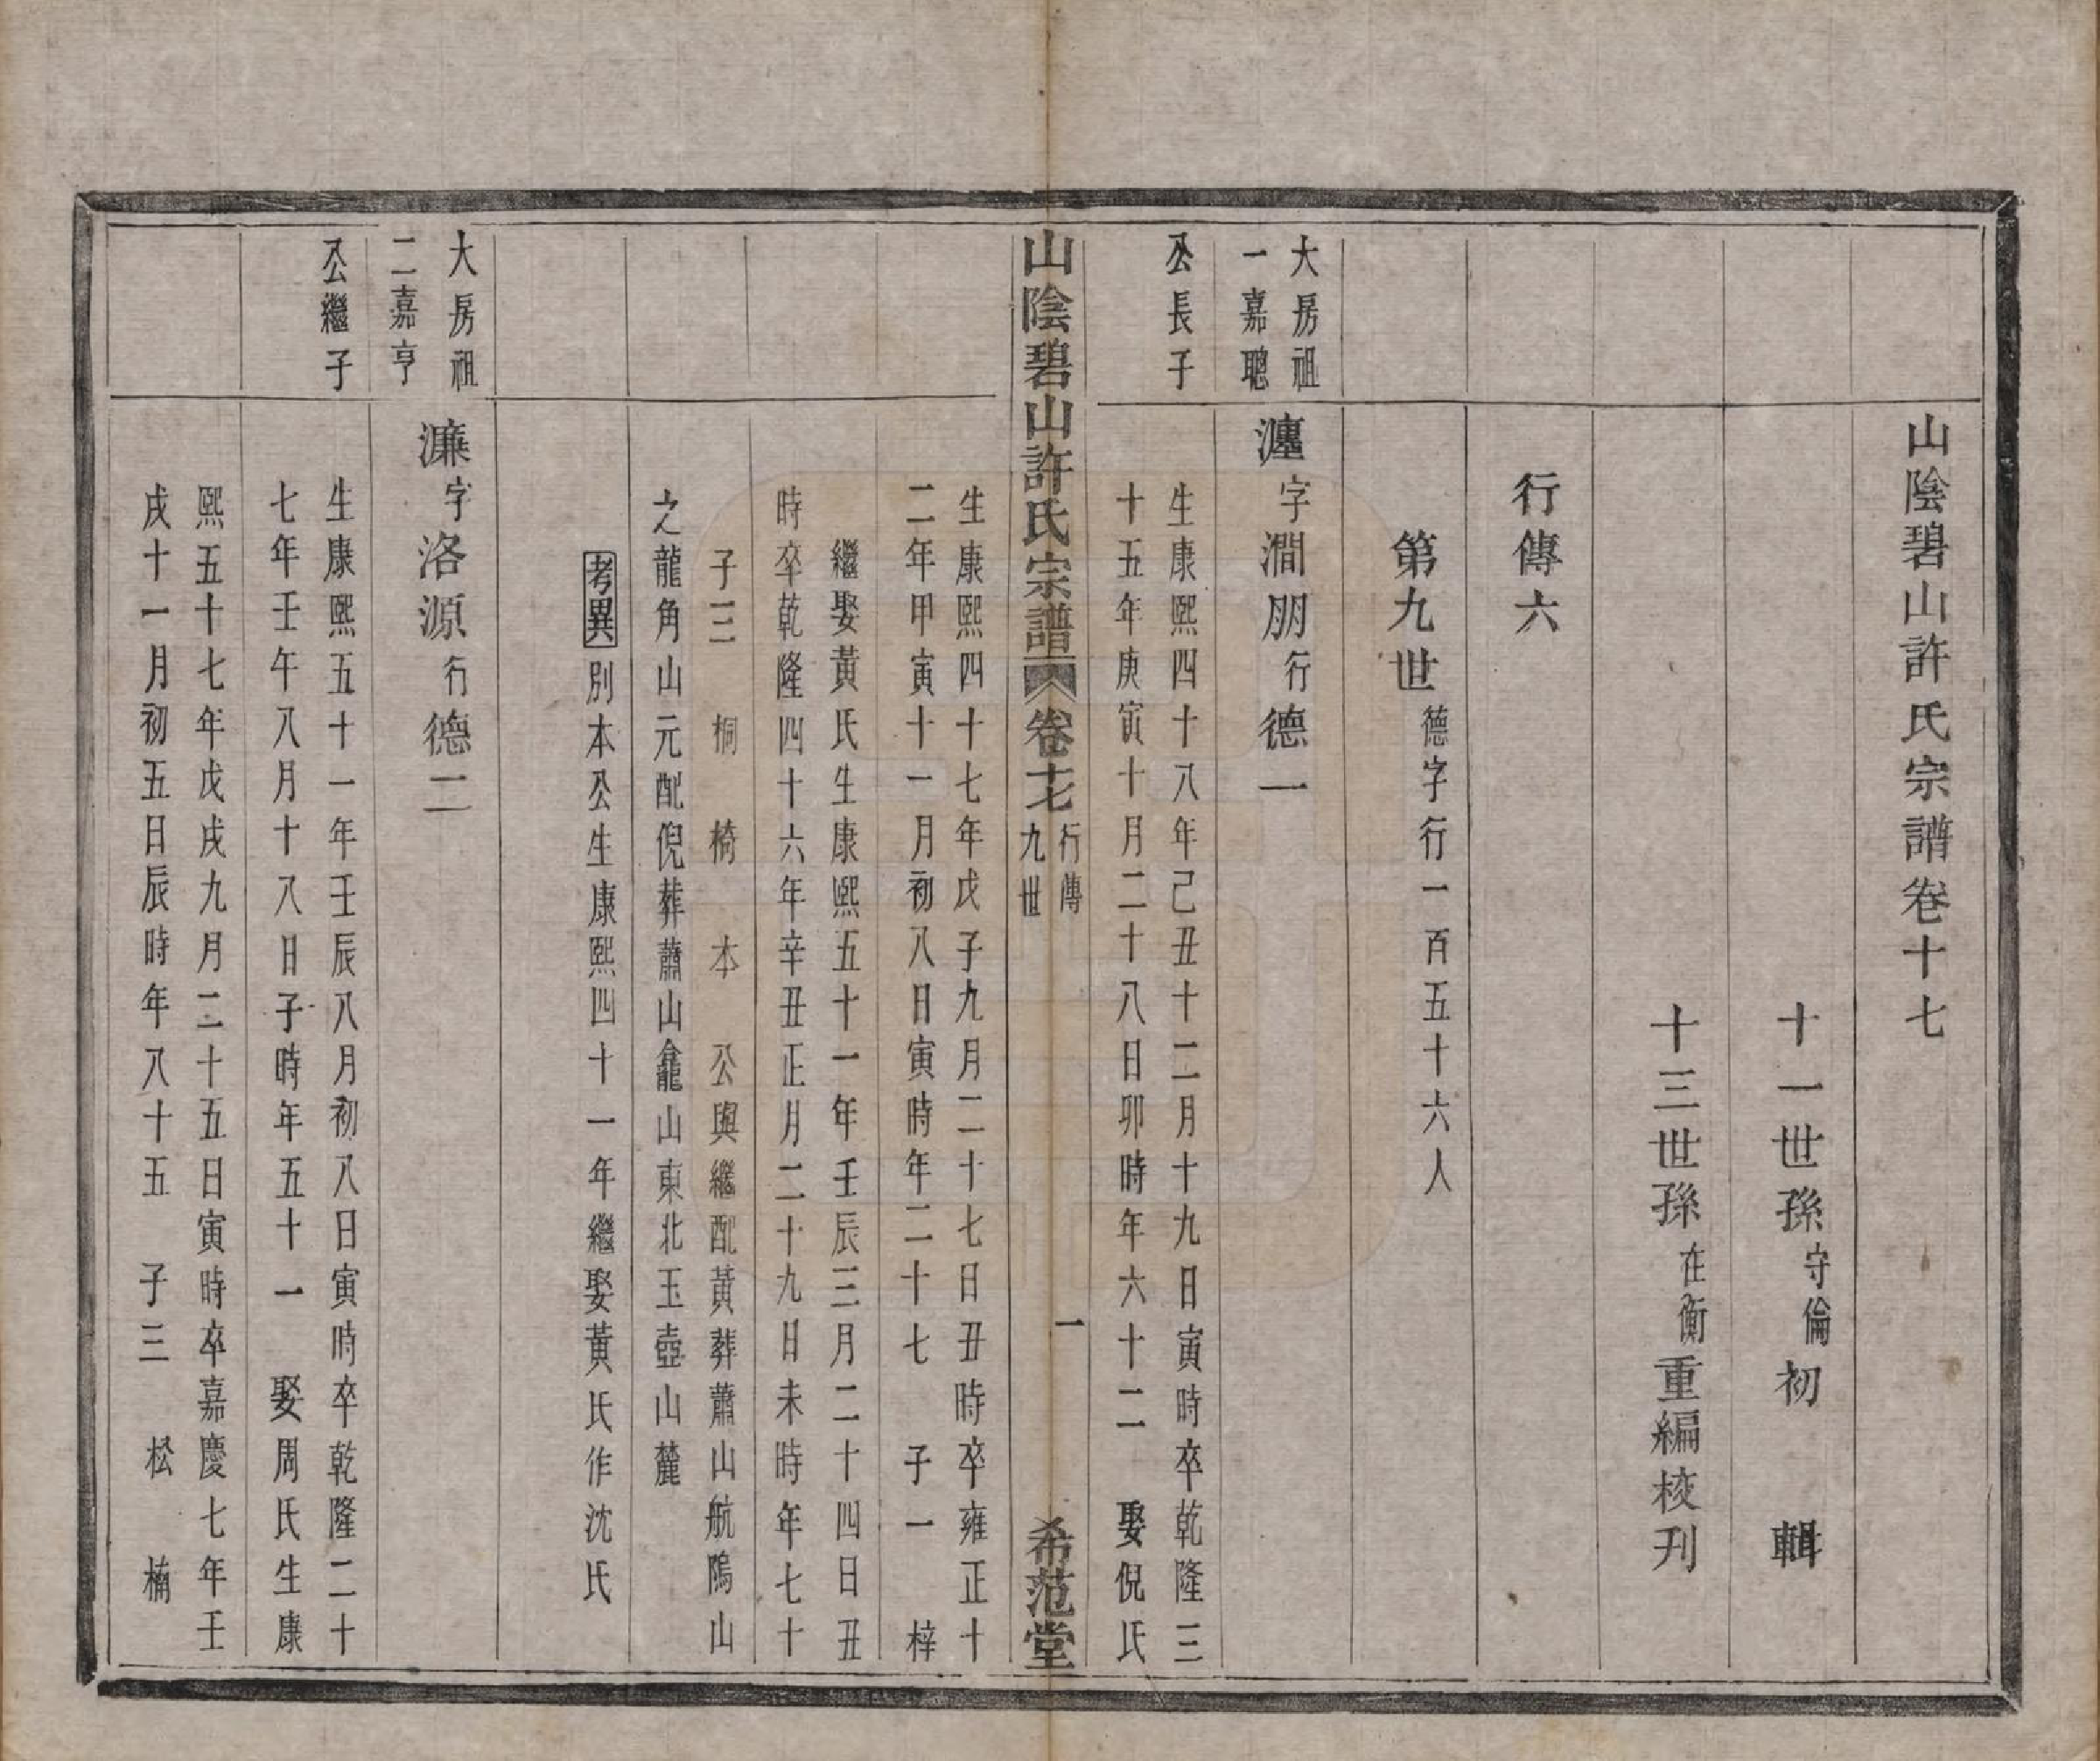 山陰碧山許氏宗譜卷十七
十一世孫守倫初輯
十三世孫在衡重編校刋
行傳六
第九世德字行一百五十六人
大房祖
一嘉聰
公長子
瀍字澗朋行德一
生康熙四十八年己丑十二月十九日寅時卒乾隆三
十五年庚寅十月二十八日卯時年六十二 娶倪氏
山陰碧山許氏宗譜 卷十七 行傳 九世 一 希范堂
生康熙四十七年戊子九月二十七日丑時卒雍正十
二年甲寅十一月初八日寅時年二十七 子一 梓
繼娶黃氏生康熙五十一年壬辰三月二十四日丑
時卒乾隆四十六年辛丑正月二十九日未時年七十
子三 桐 椅 本 公與繼配黃葬蕭山航鴿山
之龍角山元配倪葬蕭山龕山東北玉壺山麓
考異別本公生康熙四十一年繼娶黃氏作沈氏
大房祖
二嘉亨
公繼子
濂字洛源行德二
生康熙五十一年壬辰八月初八日寅時卒乾隆二十
七年壬午八月十八日子時年五十一 娶周氏生康
熙五十七年戊戌九月二十五日寅時卒嘉慶七年壬
戌十一月初五日辰時年八十五 子三 松 楠